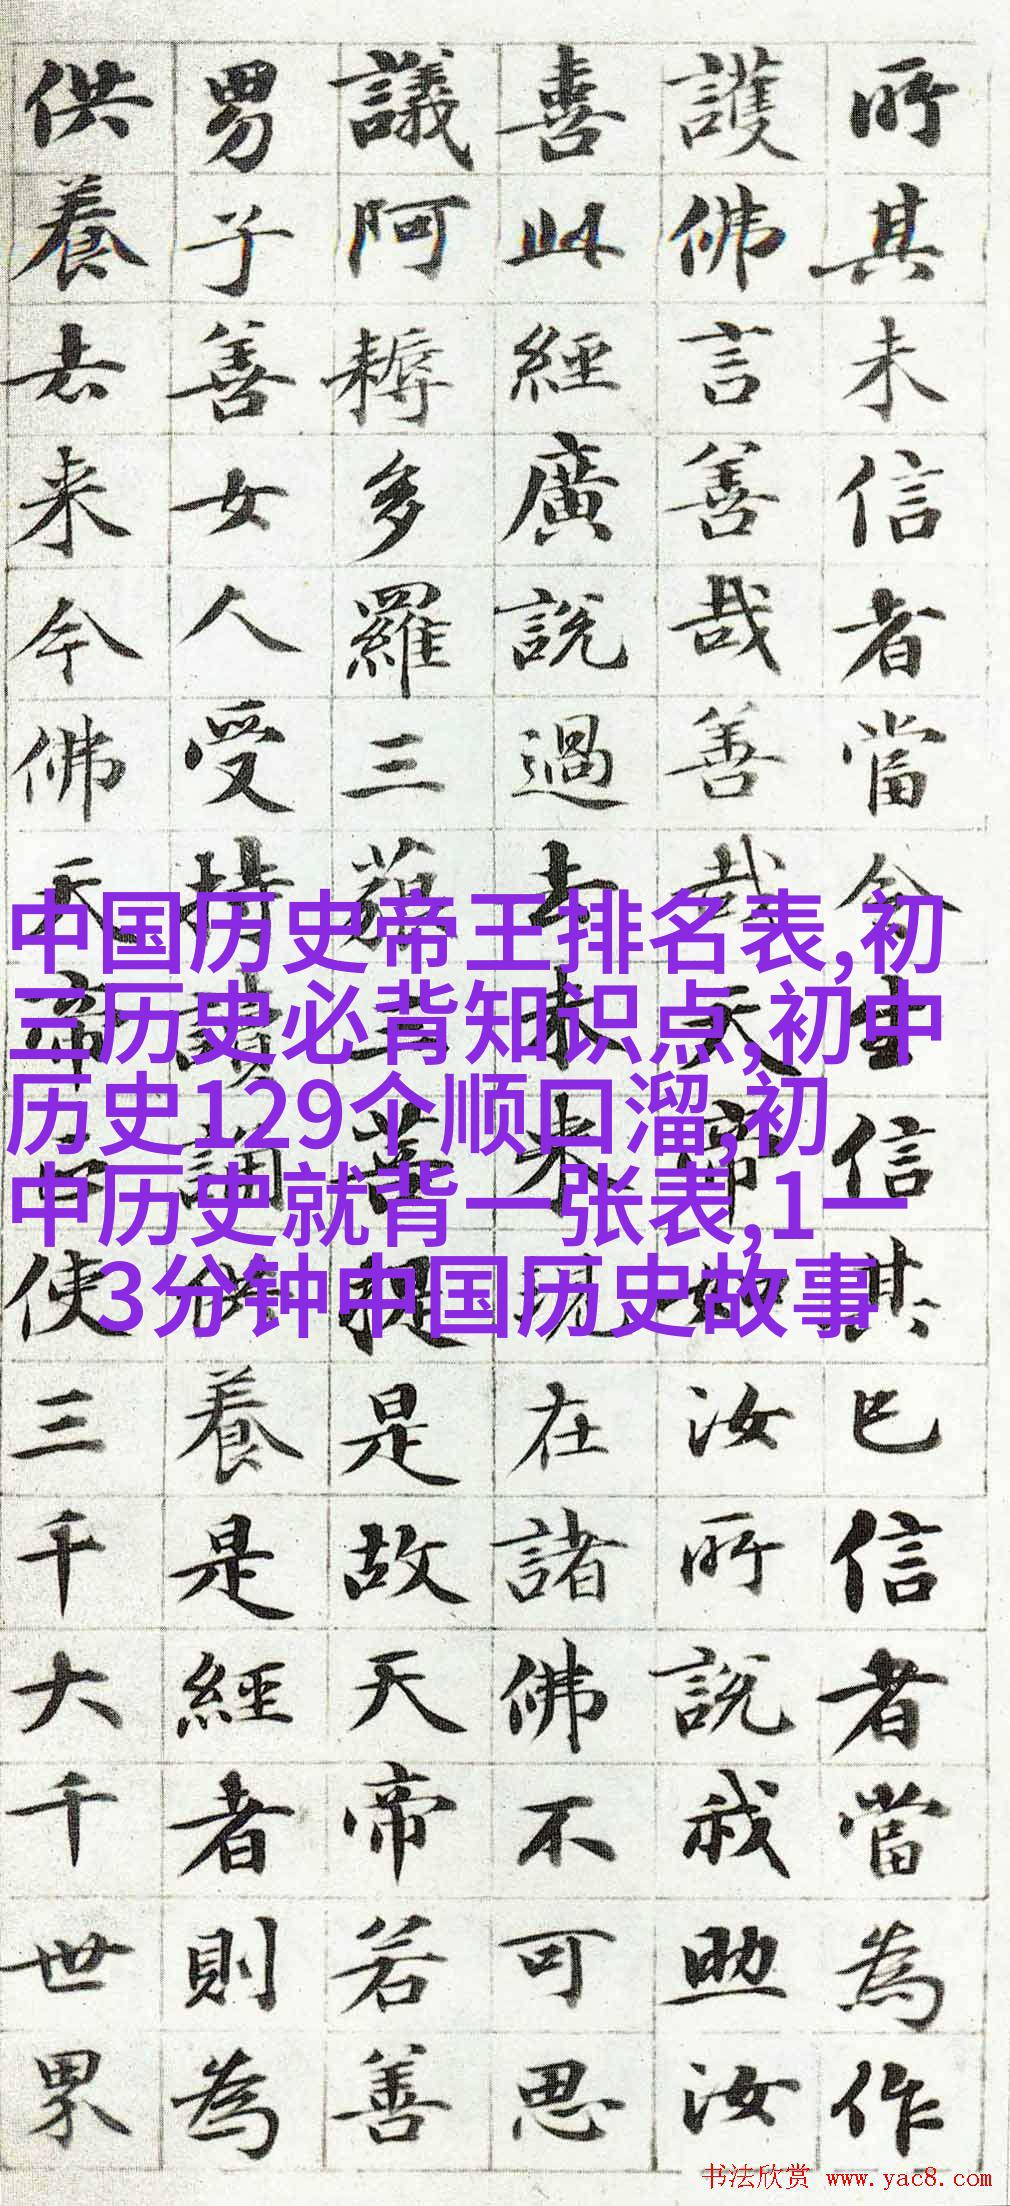 所其未信者當令生信其已信者當為作
護佛言善哉善哉天帝如汝所說我助汝
喜此經廣說過去未来現在諸佛不可思
議阿耨多羅三藐三菩提是故天帝若善
男子善女人受持讀誦供養是經者則為
供養去来今佛天帝正使三千大千世界
中国历史帝王排名表,初
三历史必背知识点,初中
历史129个顺口溜,初
中历史就背一张表,1一
3分钟中国历史故事
书法欣赏 www.yac8.com